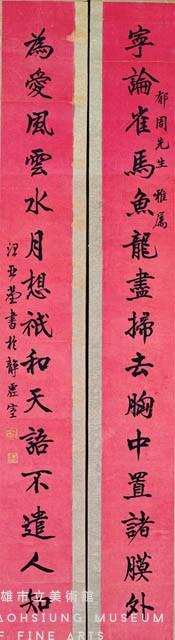 寧論雀馬魚龍盡掃去胸中置諸膜外
郁周先生 雅屬
為愛風雲水月想祇和天語不遣人知
書於靜虛室
雄市立美術館
AOHSIUNG MUSEUM
OF FINE ARTS